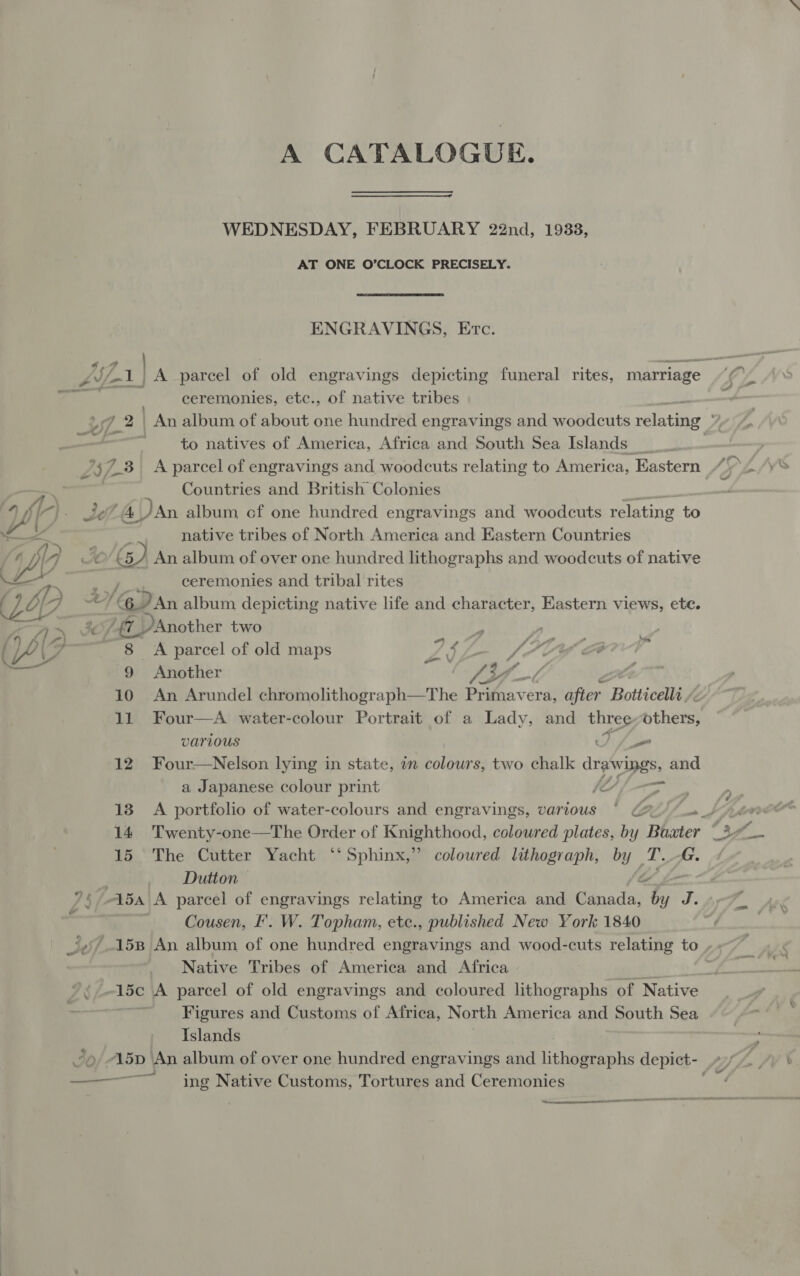 A CATALOGUE.
WEDNESDAY, FEBRUARY 22nd, 1933,
AT ONE O'CLOCK PRECISELY.
ENGRAVINGS, ETC.
1 A parcel of old engravings depicting funeral rites, marriage
ceremonies, etc., of native tribes
2 An album of about one hundred engravings and woodcuts relating
to natives of America, Africa and South Sea Islands
3 A parcel of engravings and woodcuts relating to America, Eastern
Countries and British Colonies
4 An album of one hundred engravings and woodcuts relating to
native tribes of North America and Eastern Countries
5 An album of over one hundred lithographs and woodcuts of native
ceremonies and tribal rites
6 An album depicting native life and character, Eastern views, etc.
7 Another two
8 A parcel of old maps
9 Another
10 An Arundel chromolithograph—The Primavera, after Botticelli
11 Four—A water-colour Portrait of a Lady, and three others,
various
12 Four—Nelson lying in state, in colours, two chalk drawings, and
a Japanese colour print
13 A portfolio of water-colours and engravings, various
14 Twenty-one—The Order of Knighthood, coloured plates, by Baxter
15 The Cutter Yacht “Sphinx,” coloured lithograph, by T. G.
Dutton
15A A parcel of engravings relating to America and Canada, by J.
Cousen, F. W. Topham, etc., published New York 1840
15B An album of one hundred engravings and wood-cuts relating to
Native Tribes of America and Africa
15C A parcel of old engravings and coloured lithographs of Native
Figures and Customs of Africa, North America and South Sea
Islands
15D An album of over one hundred engravings and lithographs depict-
ing Native Customs, Tortures and Ceremonies